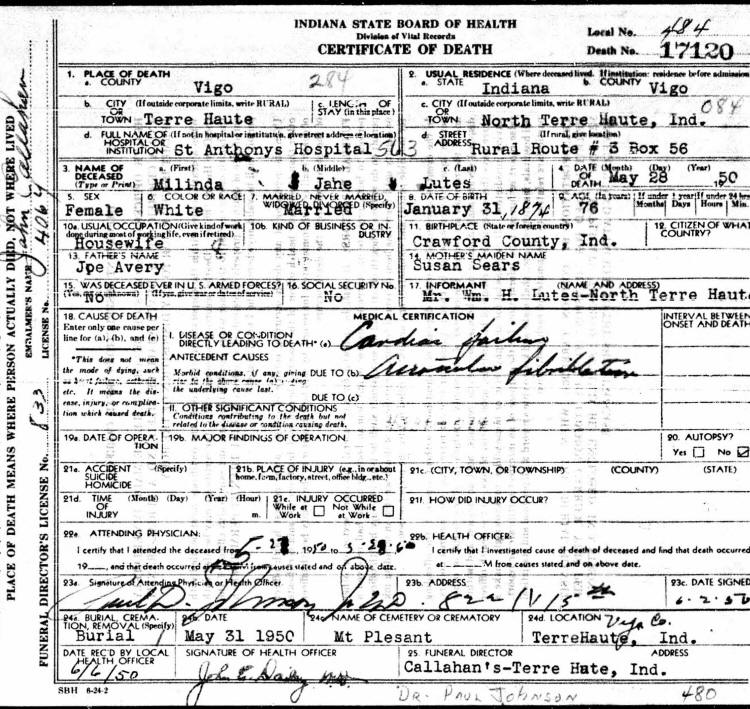 INDIANA STATE BOARD OF HEALTH
Division of Vital Records
CERTIFICATE OF DEATH
Local No. 484
Death No. 17120
1. PLACE OF DEATH
a. COUNTY Vigo 284
2. USUAL RESIDENCE (Where deceased lived. If institution: residence before admission
a. STATE Indiana b. COUNTY Vigo
b. CITY OR TOWN (If outside corporate limits, write RURAL) Terre Haute
c. LENGTH OF STAY (in this place)
c. CITY OR TOWN (If outside corporate limits, write RURAL) North Terre Haute, Ind. 084
d. FULL NAME OF HOSPITAL OR INSTITUTION (If not in hospital or institution, give street address or location) St Anthonys Hospital 563
d. STREET ADDRESS (If rural, give location) Rural Route # 3 Box 56
3. NAME OF DECEASED (Type or Print)
a. (First) Milinda
b. (Middle) Jane
c. (Last) Lutes
4. DATE OF DEATH (Month) (Day) (Year) May 28 50
5. SEX Female
6. COLOR OR RACE White
7. MARRIED, NEVER MARRIED, WIDOWED, DIVORCED (Specify) Married
8. DATE OF BIRTH January 31, 1874
9. AGE (In years) 76
If under 1 year Months Days
If under 24 hrs Hours Min.
10a. USUAL OCCUPATION (Give kind of work done during most of working life, even if retired) Housewife
10b. KIND OF BUSINESS OR INDUSTRY
11. BIRTHPLACE (State or foreign country) Crawford County, Ind.
12. CITIZEN OF WHAT COUNTRY?
13. FATHER'S NAME Joe Avery
14. MOTHER'S MAIDEN NAME Susan Sears
15. WAS DECEASED EVER IN U. S. ARMED FORCES? (Yes, no, or unknown) (If yes, give war or dates of service) No
16. SOCIAL SECURITY No. NO
17. INFORMANT (NAME AND ADDRESS) Mr. Wm. H. Lutes-North Terre Haut
18. CAUSE OF DEATH
Enter only one cause per line for (a), (b), and (c)
*This does not mean the mode of dying, such as heart failure, asthenia, etc. It means the disease, injury, or complication which caused death.
MEDICAL CERTIFICATION
INTERVAL BETWEEN ONSET AND DEATH
I. DISEASE OR CONDITION DIRECTLY LEADING TO DEATH* (a) Cardiac failure
ANTECEDENT CAUSES
Morbid conditions, if any, giving rise to the above cause (a) stating the underlying cause last.
DUE TO (b) Auricular fibrillation
DUE TO (c)
II. OTHER SIGNIFICANT CONDITIONS
Conditions contributing to the death but not related to the disease or condition causing death.
19a. DATE OF OPERATION
19b. MAJOR FINDINGS OF OPERATION.
20. AUTOPSY?
Yes No
21a. ACCIDENT SUICIDE HOMICIDE (Specify)
21b. PLACE OF INJURY (e.g., in or about home, farm, factory, street, office bldg., etc.)
21c. (CITY, TOWN, OR TOWNSHIP) (COUNTY) (STATE)
21d. TIME OF INJURY (Month) (Day) (Year) (Hour) m.
21e. INJURY OCCURRED
While at Work Not While at Work
21f. HOW DID INJURY OCCUR?
22a. ATTENDING PHYSICIAN:
I certify that I attended the deceased from 5-27, 1950 to 5-28-50
19__, and that death occurred at M from causes stated and on above date.
22b. HEALTH OFFICER:
I certify that I investigated cause of death of deceased and find that death occurred
at ____ M from causes stated and on above date.
23a. Signature of Attending Physician or Health Officer
Paul D. Johnson M.D.
23b. ADDRESS 822 N 15th
23c. DATE SIGNED 6-2-50
24a. BURIAL, CREMATION, REMOVAL (Specify) Burial
24b. DATE May 31 1950
24c. NAME OF CEMETERY OR CREMATORY Mt Plesant
24d. LOCATION Vigo Co. TerreHaute, Ind.
DATE REC'D BY LOCAL HEALTH OFFICER 6/6/50
SIGNATURE OF HEALTH OFFICER John E. Dailey M.D.
25. FUNERAL DIRECTOR ADDRESS
Callahan's-Terre Hate, Ind.
SBH 6-24-2
DR. PAUL JOHNSON 480
PLACE OF DEATH MEANS WHERE PERSON ACTUALLY DIED, NOT WHERE LIVED
EMBALMER'S NAME John Callahan
LICENSE No. 4064
FUNERAL DIRECTOR'S LICENSE No. 833